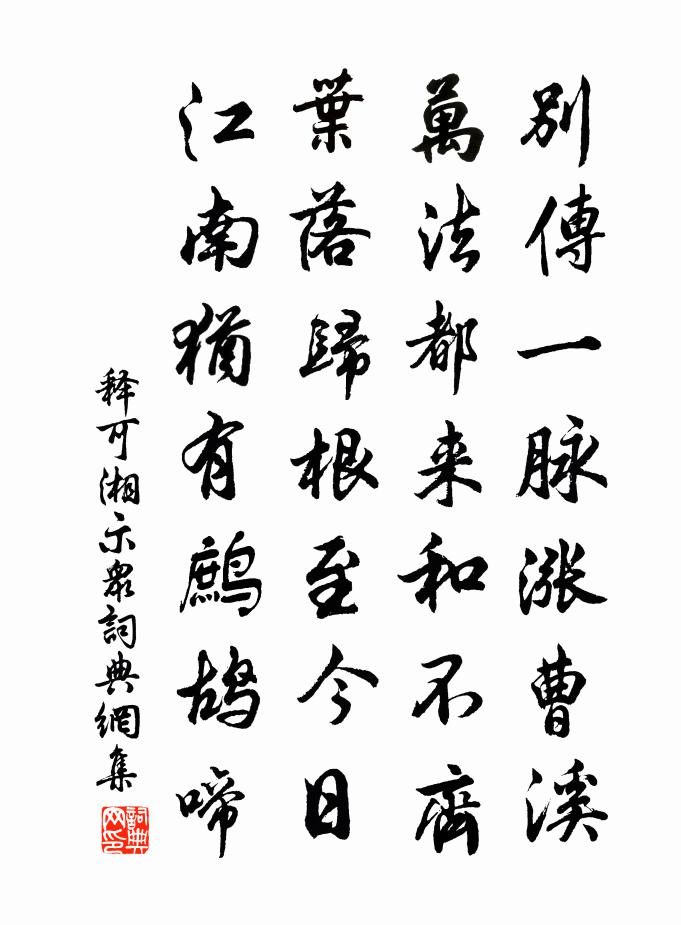 別傳一脉漲曹溪
萬法都来和不齊
葉落歸根至今日
江南猶有鷓鴣啼
释可湘示衆詞典網集
詞典网印